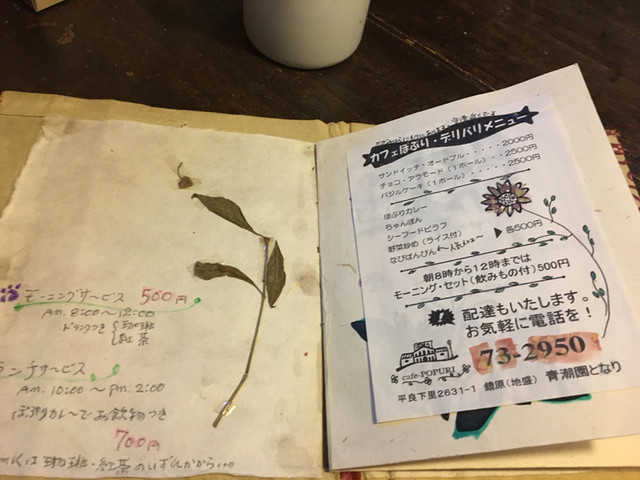 モーニングサービス 500円
Am. 8:00〜12:00
ドリンクつき 珈琲
紅茶
ランチサービス
Am. 10:00〜Pm. 2:00
ぽぷりカレーでお飲物つき
700円
カフェぽぷり・デリバリメニュー
サンドイッチ・オードブル・・・・・2000円
チョコ・アラモード(1ホール)・・2500円
バジルケーキ(1ホール)・・・・・2500円
ぽぷりカレー
ちゃんぽん
シーフードピラフ
野菜炒め(ライス付) ▶ 各500円
朝8時から12時までは
モーニング・セット(飲みもの付)500円
配達もいたします。
お気軽に電話を!
cafe-POPURI
73-2950
平良下里2631-1 鏡原(地盛) 青潮園となり